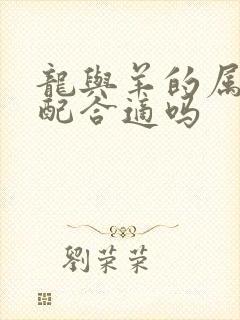 龍與羊的属
配合適吗
劉荣荣